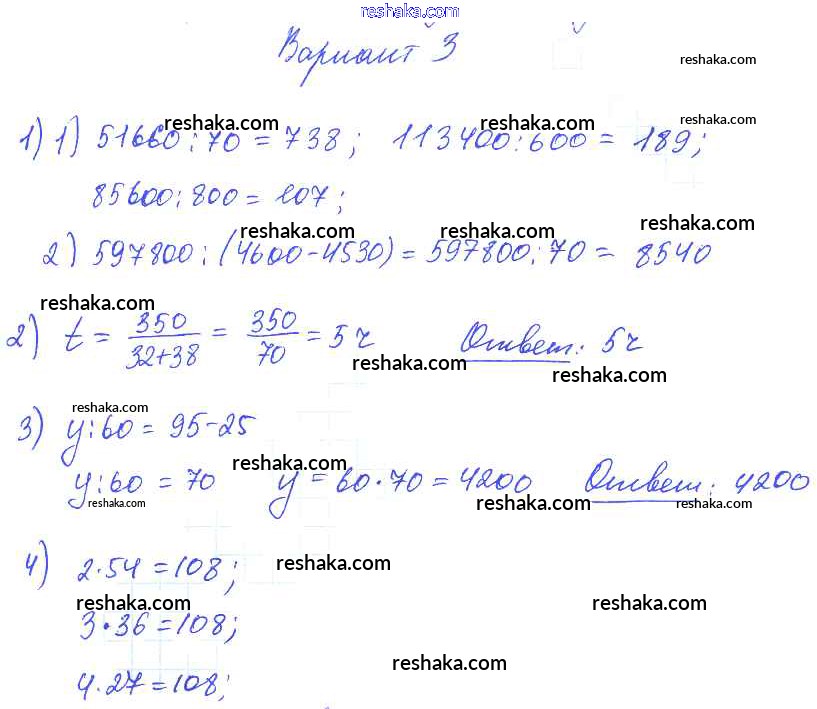 reshaka.com
Вариант 3
reshaka.com
reshaka.com
reshaka.com
reshaka.com
1) 1) 51660 : 70 = 738 ; 113400 : 600 = 189 ;
85600 : 800 = 107 ;
reshaka.com
reshaka.com
reshaka.com
2) 597800 : (4600 - 4530) = 597800 : 70 = 8540
reshaka.com
2) t = 350/32+38 = 350/70 = 5 ч Ответ: 5 ч
reshaka.com
reshaka.com
reshaka.com
3) y : 60 = 95 - 25
reshaka.com
y : 60 = 70 y = 60 · 70 = 4200 Ответ: 4200
reshaka.com
reshaka.com
reshaka.com
4) 2 · 54 = 108 ;
reshaka.com
reshaka.com
reshaka.com
3 · 36 = 108 ;
reshaka.com
4 · 27 = 108 ;